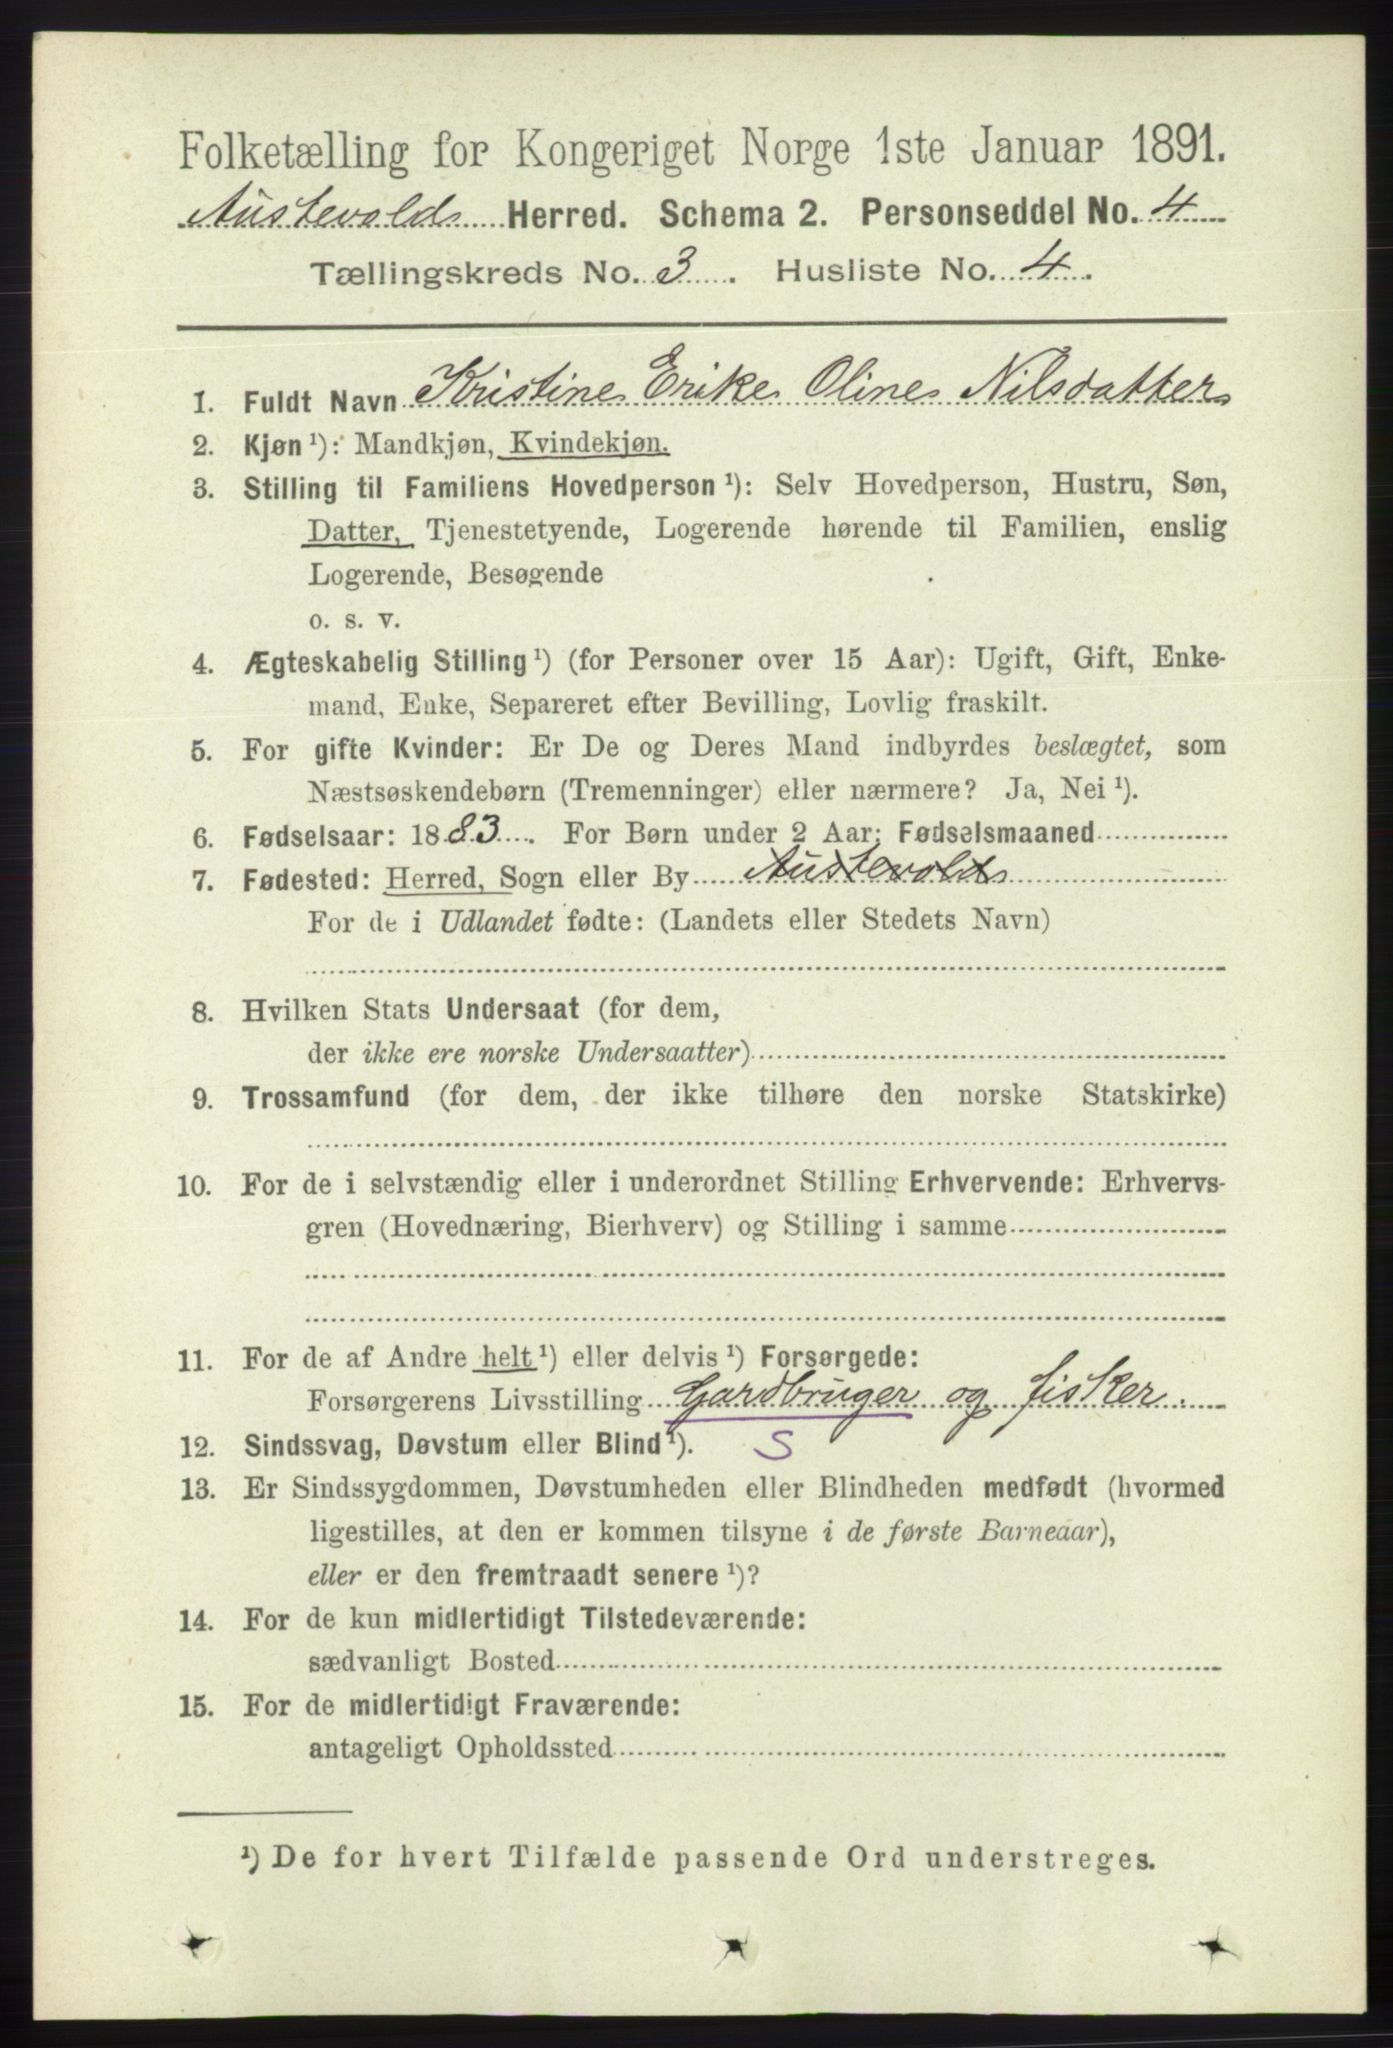 Folketælling for Kongeriget Norge 1ste Januar 1891.
Austevold Herred. Schema 2. Personseddel No. 4
Tællingskreds No. 3. Husliste No. 4.
1. Fuldt Navn Kristine Erike Oline Nilsdatter
2. Kjøn ¹): Mandkjøn, Kvindekjøn.
3. Stilling til Familiens Hovedperson ¹): Selv Hovedperson, Hustru, Søn,
Datter, Tjenestetyende, Logerende hørende til Familien, enslig
Logerende, Besøgende
o. s. v.
4. Ægteskabelig Stilling ¹) (for Personer over 15 Aar): Ugift, Gift, Enke-
mand, Enke, Separeret efter Bevilling, Lovlig fraskilt.
5. For gifte Kvinder: Er De og Deres Mand indbyrdes beslægtet, som
Næstsøskendebørn (Tremenninger) eller nærmere? Ja, Nei ¹).
6. Fødselsaar: 1883. For Børn under 2 Aar: Fødselsmaaned
7. Fødested: Herred, Sogn eller By Austevold
For de i Udlandet fødte: (Landets eller Stedets Navn)
8. Hvilken Stats Undersaat (for dem,
der ikke ere norske Undersaatter)
9. Trossamfund (for dem, der ikke tilhøre den norske Statskirke)
10. For de i selvstændig eller i underordnet Stilling Erhvervende: Erhvervs-
gren (Hovednæring, Bierhverv) og Stilling i samme
11. For de af Andre helt ¹) eller delvis ¹) Forsørgede:
Forsørgerens Livsstilling Gardbruger og fisker.
12. Sindssvag, Døvstum eller Blind ¹). S
13. Er Sindssygdommen, Døvstumheden eller Blindheden medfødt (hvormed
ligestilles, at den er kommen tilsyne i de første Barneaar),
eller er den fremtraadt senere ¹)?
14. For de kun midlertidigt Tilstedeværende:
sædvanligt Bosted
15. For de midlertidigt Fraværende:
antageligt Opholdssted
¹) De for hvert Tilfælde passende Ord understreges.